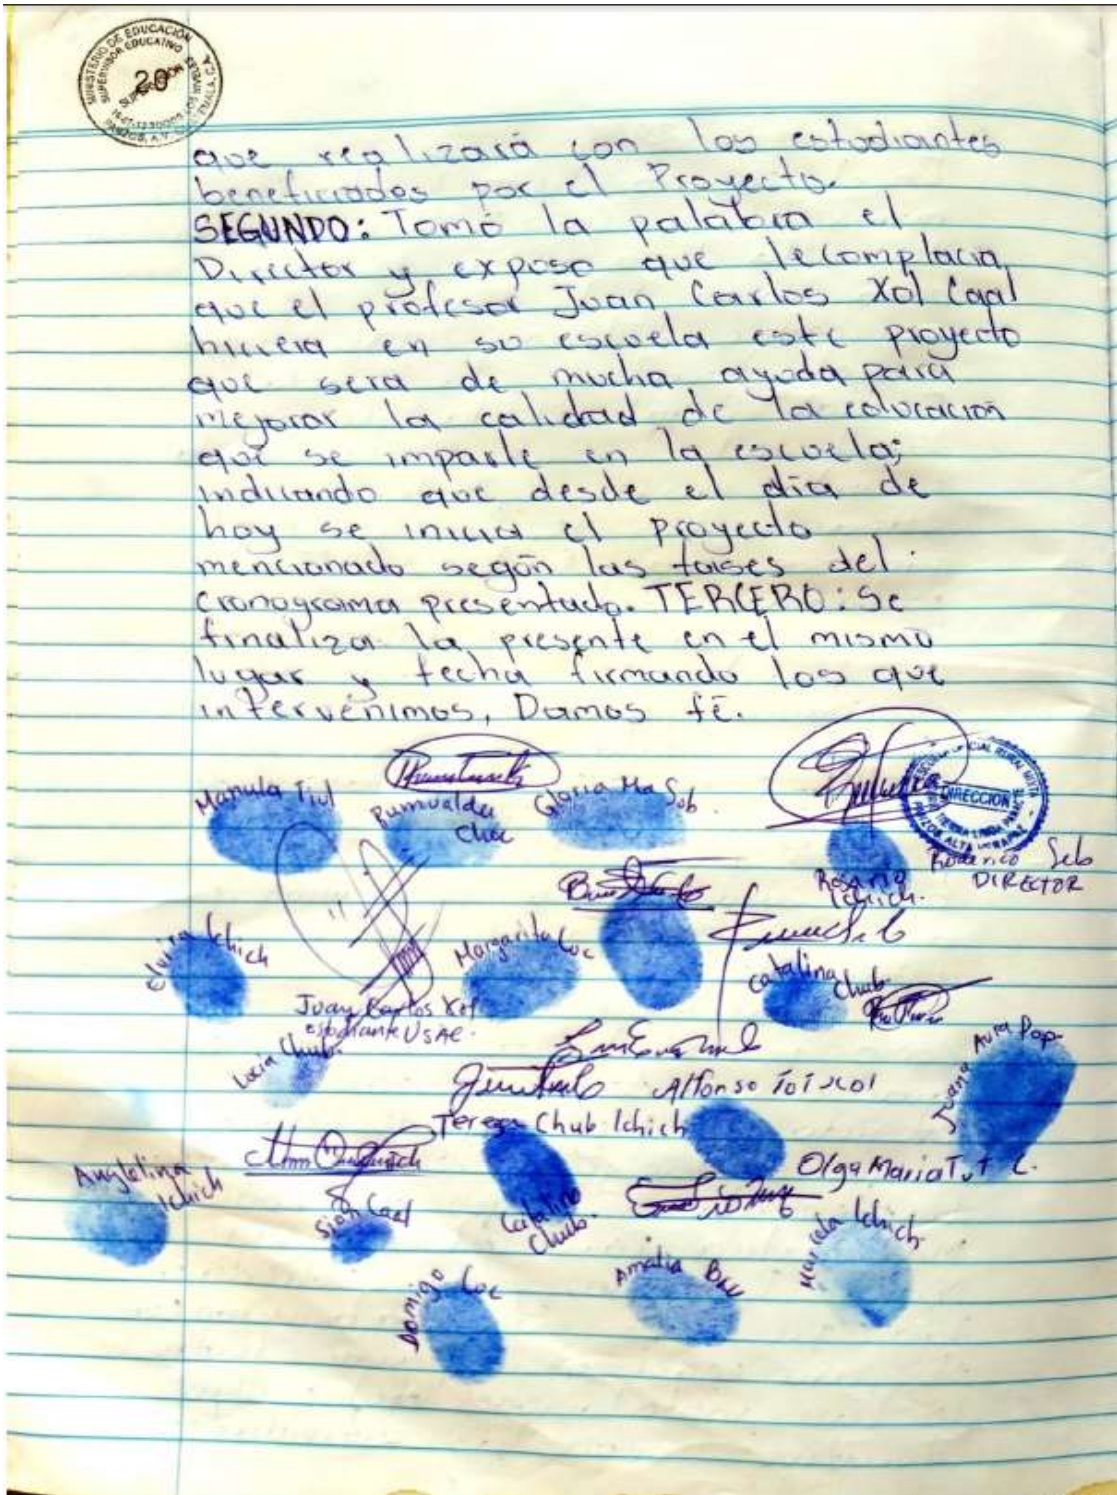 MINISTERIO DE EDUCACIÓN
SUPERVISOR EDUCATIVO
20
que realizará con los estudiantes
beneficiados por el Proyecto.
SEGUNDO: Tomó la palabra el
Director y expuso que lecomplacia
que el profesor Juan Carlos Xol Caal
hiciera en su escuela este proyecto
que sera de mucha ayuda para
mejorar la calidad de la educacion
que se imparte en la escuela;
indicando que desde el día de
hoy se inicia el proyecto
mencionado según las faises del
cronograma presentado. TERCERO: Se
finaliza la presente en el mismo
lugar y fecha firmando los que
intervenimos, Damos fé.
Manula Tiul
Rumualdu Choc
Gloria Ma Sob
DIRECCION
Roderico Seb
DIRECTOR
Rosario Ichich.
Elvira Ichich
Margarita Coc
Catalina Chub
Juan Carlos Xol
estudiante USAC.
Lucia Chub.
Juana Aura Pop.
Alfonso
Teresa Chub Ichich
Olga Maria Tut C.
Anglelina Ichich
Sion Caal
Catalina Chub.
Marcela Ichich
Domigo Coc
Amalia